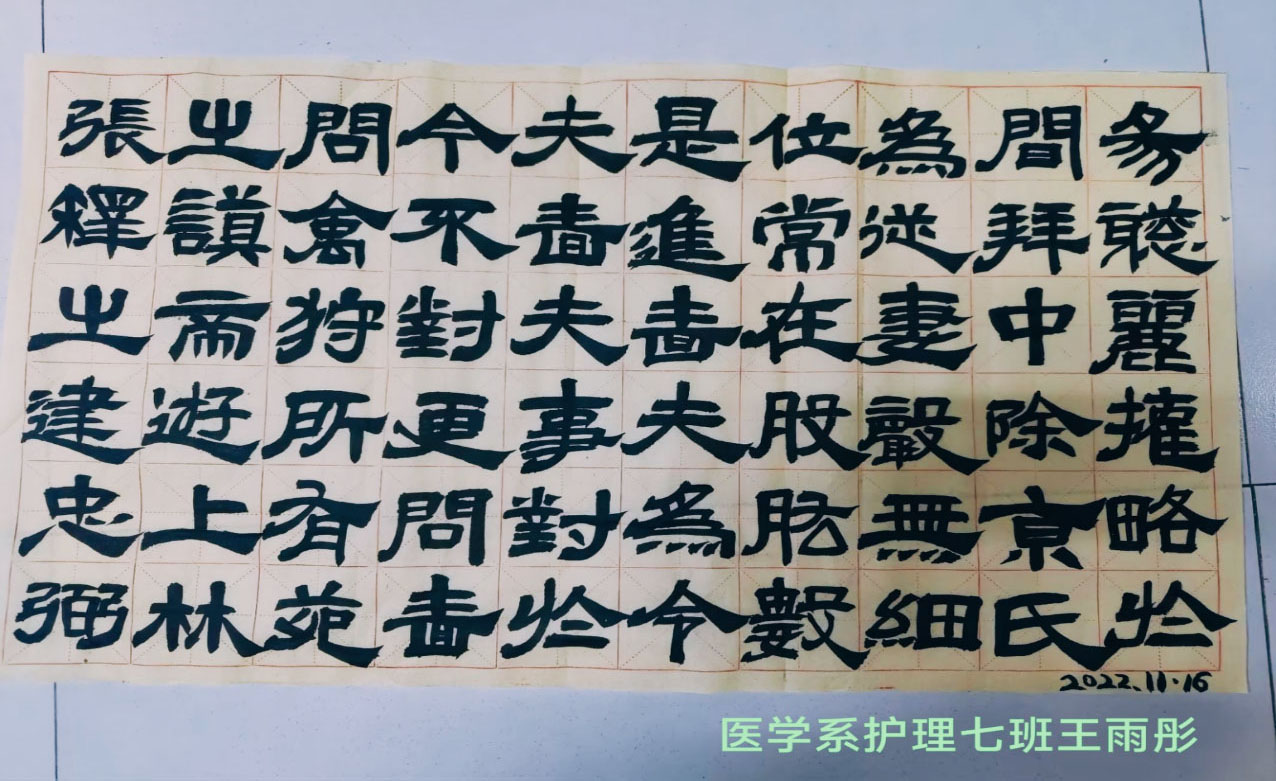 張釋之建忠弼
之謨帝遊上林
問禽狩所有苑
令不對更問嗇
夫嗇夫事對於
是進嗇夫為令
位常在股肱數
為從事聲無細
間拜中除京氏
易聰麗權略於
2022.11.16
医学系护理七班王雨彤